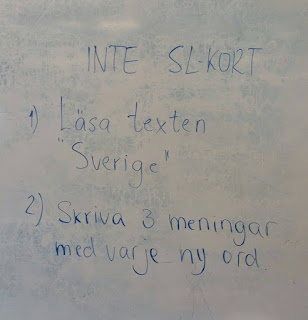 INTE SL-KORT
1) Läsa texten
"Sverige"
2) Skriva 3 meningar
med varje ny ord.